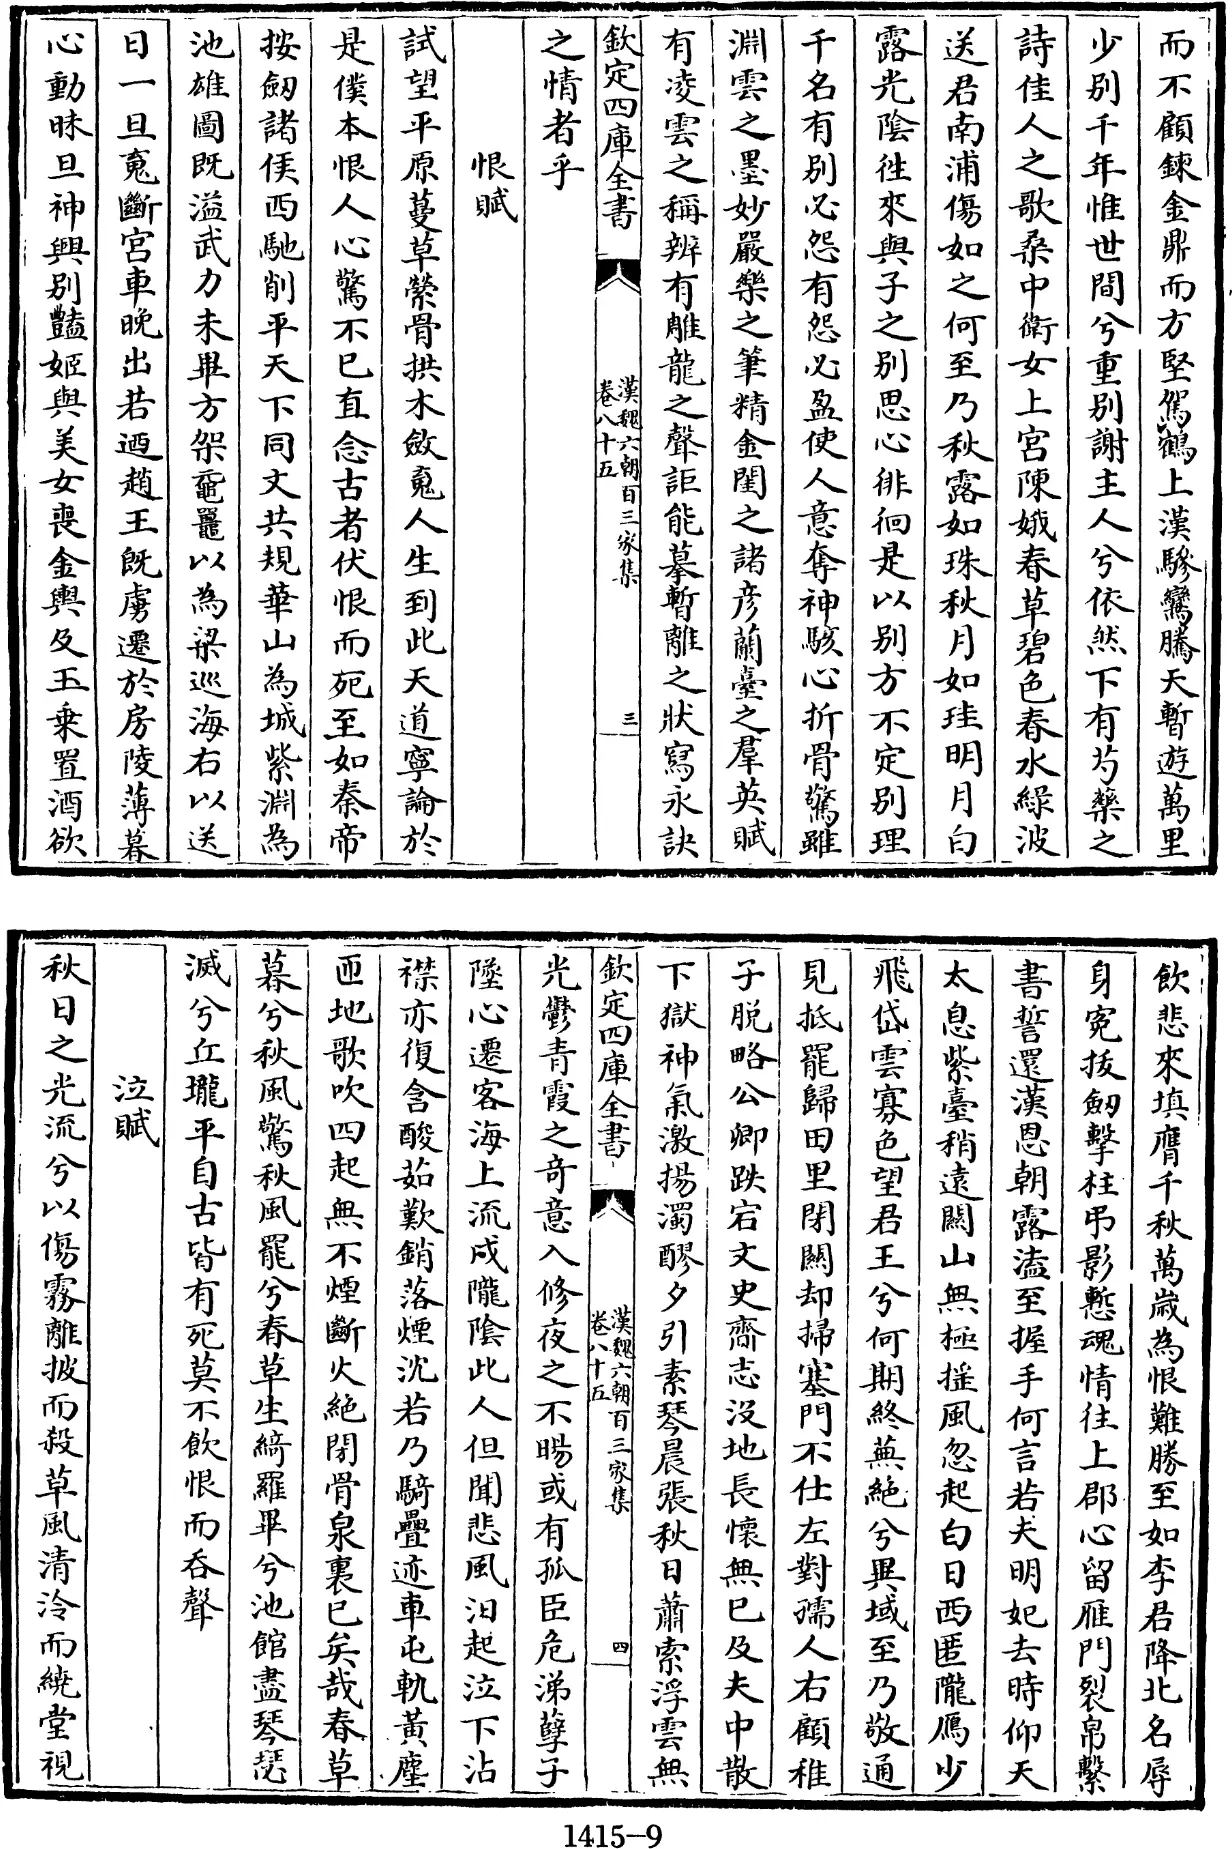 而不顧鍊金鼎而方堅駕鶴上漢驂鸞騰天暫遊萬里
少别千年惟世間兮重别謝主人兮依然下有芍藥之
詩佳人之歌桑中衛女上宮陳娥春草碧色春水綠波
送君南浦傷如之何至乃秋露如珠秋月如珪明月白
露光陰徃來與子之别思心徘徊是以别方不定别理
千名有别必怨有怨必盈使人意奪神駭心折骨驚雖
淵雲之墨妙嚴樂之筆精金閨之諸彦蘭臺之羣英賦
有凌雲之稱辨有雕龍之聲詎能摹暫離之狀寫永訣
欽定四庫全書
漢魏六朝百三家集
卷八十五
三
之情者乎
恨賦
試望平原蔓草縈骨拱木斂䰟人生到此天道寧論於
是僕本恨人心驚不已直念古者伏恨而死至如秦帝
按劒諸侯西馳削平天下同文共規華山為城紫淵為
池雄圖既溢武力未畢方架黿鼉以為梁巡海右以送
日一旦䰟斷宮車晚出若迺趙王既虜遷於房陵薄暮
心動昧旦神興别豔姬與美女喪金輿及玉乗置酒欲
飲悲來填膺千秋萬歲為恨難勝至如李君降北名辱
身寃拔劒擊柱弔影慙魂情往上郡心留雁門裂帛繫
書誓還漢恩朝露溘至握手何言若夫明妃去時仰天
太息紫臺稍遠關山無極揺風忽起白日西匿隴鴈少
飛岱雲寡色望君王兮何期終蕪絶兮異域至乃敬通
見抵罷歸田里閉關却掃塞門不仕左對孺人右顧稚
子脱略公卿跌宕文史齎志沒地長懷無已及夫中散
下獄神氣激揚濁醪夕引素琴晨張秋日蕭索浮雲無
欽定四庫全書
漢魏六朝百三家集
卷八十五
四
光鬱青霞之竒意入修夜之不暘或有孤臣危涕孽子
墜心遷客海上流戍隴陰此人但聞悲風汩起泣下沾
襟亦復含酸茹歎銷落煙沈若乃騎疊迹車屯軌黃塵
匝地歌吹四起無不煙斷火絶閉骨泉裏已矣哉春草
暮兮秋風驚秋風罷兮春草生綺羅畢兮池館盡琴瑟
滅兮丘壠平自古皆有死莫不飲恨而吞聲
泣賦
秋日之光流兮以傷霧離披而殺草風清泠而繞堂視
1415-9